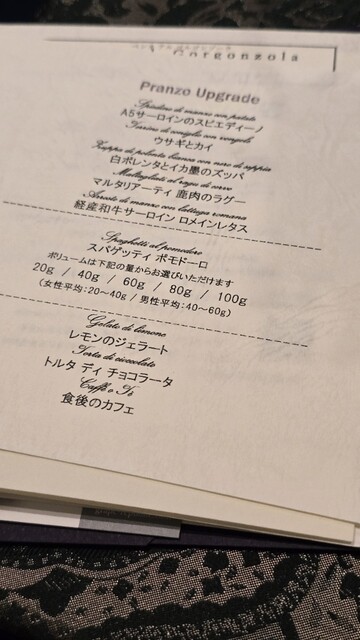 Gorgonzola
Pranzo Upgrade
Spiedino di manzo con patate
A5サーロインのスピエディーノ
Farina di coniglio con vongole
ウサギとカイ
Zuppa di polenta bianca con nero di seppia
白ポレンタとイカ墨のズッパ
Maltagliati al ragu di cervo
マルタリアーティ 鹿肉のラグー
Arrosto di manzo con lattuga romana
経産和牛サーロイン ロメインレタス
Spaghetti al pomodoro
スパゲッティ ポモドーロ
ボリュームは下記の量からお選びいただけます
20g / 40g / 60g / 80g / 100g
(女性平均:20~40g / 男性平均:40~60g)
Gelato di limone
レモンのジェラート
Torta di cioccolato
トルタ ディ チョコラータ
Caffè o Tè
食後のカフェ